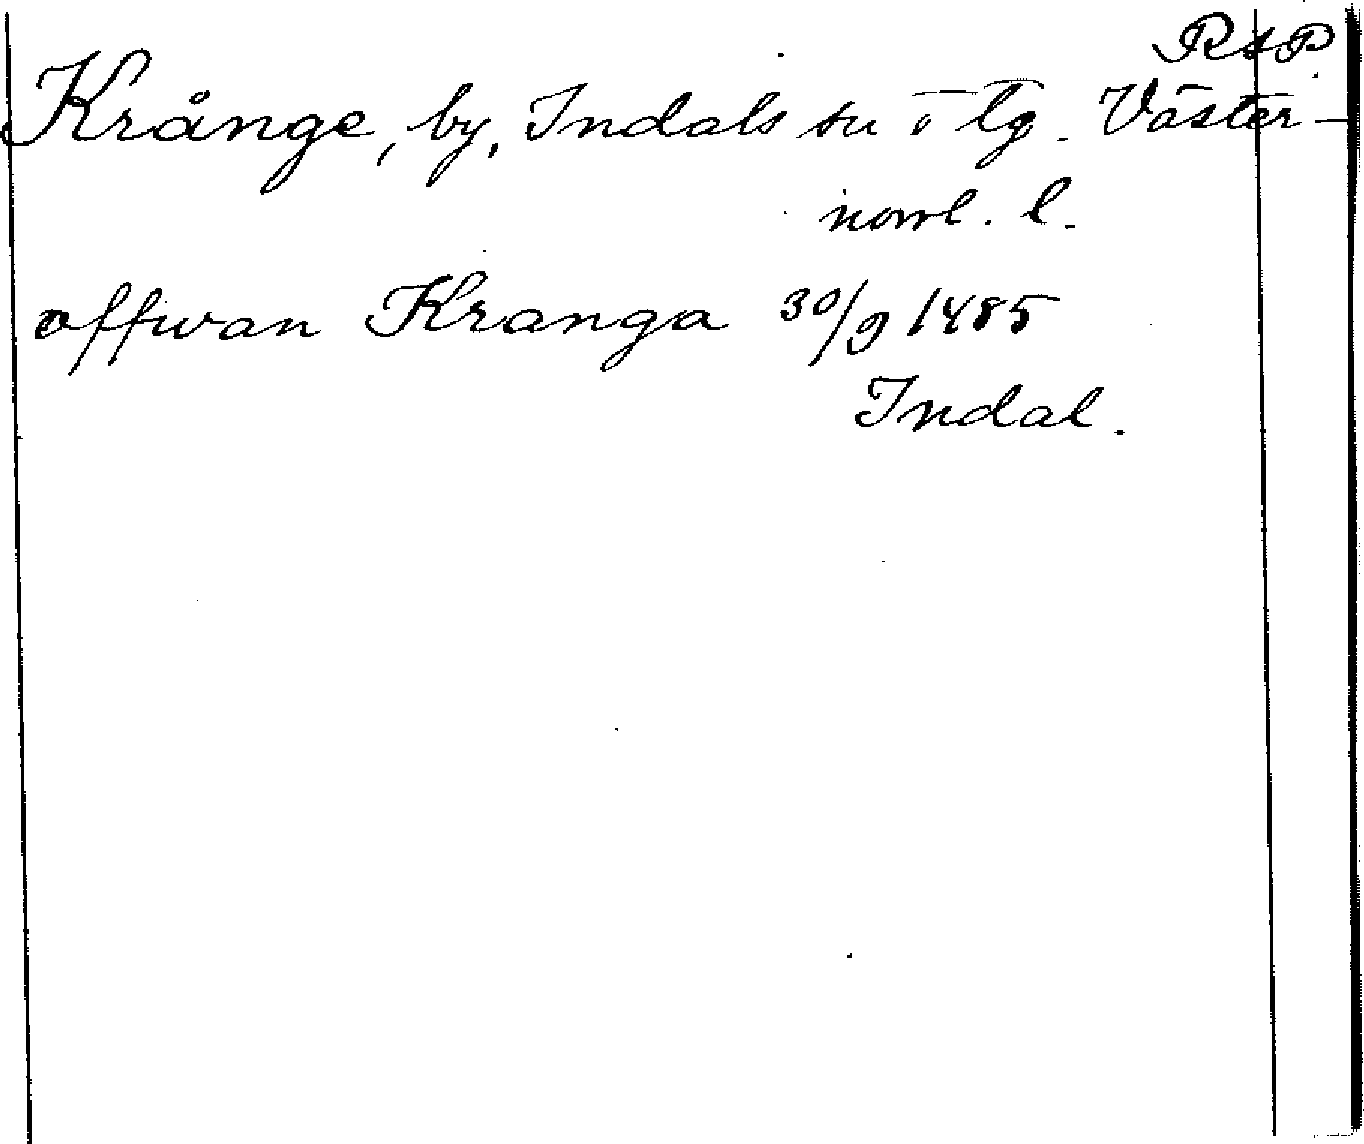 RAP
Krånge, by, Indals sn o tg. Väster-
norrl. l.
offwan Kranga 30/9 1485
Indal.